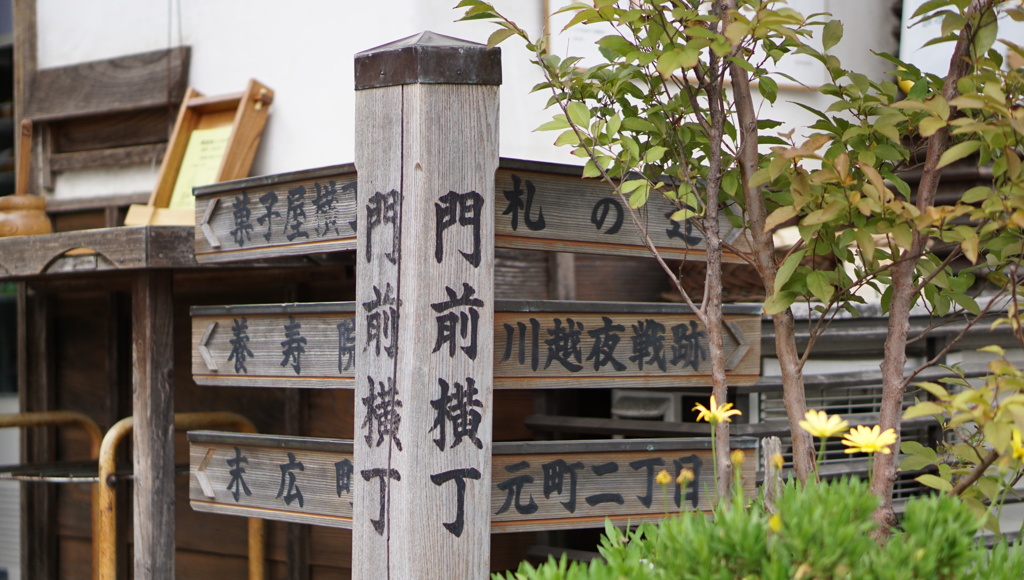 菓子屋横丁
養寿院
末広町
門前横丁
門前横丁
札の辻
川越夜戦跡
元町二丁目